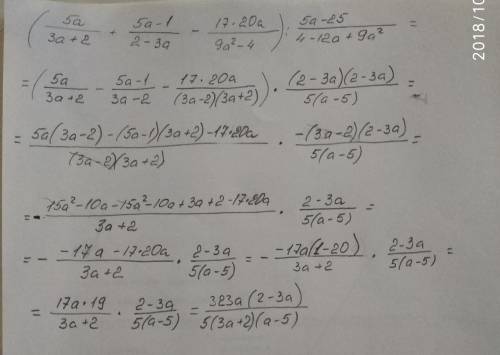 (5a/(3a+2) + (5a-1)/(2-3a) - (17·20a)/(9a²-4)) : (5a-25)/(4-12a+9a²) =
= (5a/(3a+2) - (5a-1)/(3a-2) - (17·20a)/((3a-2)(3a+2))) · ((2-3a)(2-3a))/(5(a-5)) =
= (5a(3a-2)-(5a-1)(3a+2)-17·20a)/((3a-2)(3a+2)) · (-(3a-2)(2-3a))/(5(a-5)) =
= - (15a²-10a-15a²-10a+3a+2-17·20a)/(3a+2) · (2-3a)/(5(a-5)) =
= - (-17a-17·20a)/(3a+2) · (2-3a)/(5(a-5)) = - (-17a(1-20))/(3a+2) · (2-3a)/(5(a-5)) =
= (17a·19)/(3a+2) · (2-3a)/(5(a-5)) = (323a(2-3a))/(5(3a+2)(a-5))
2018/10